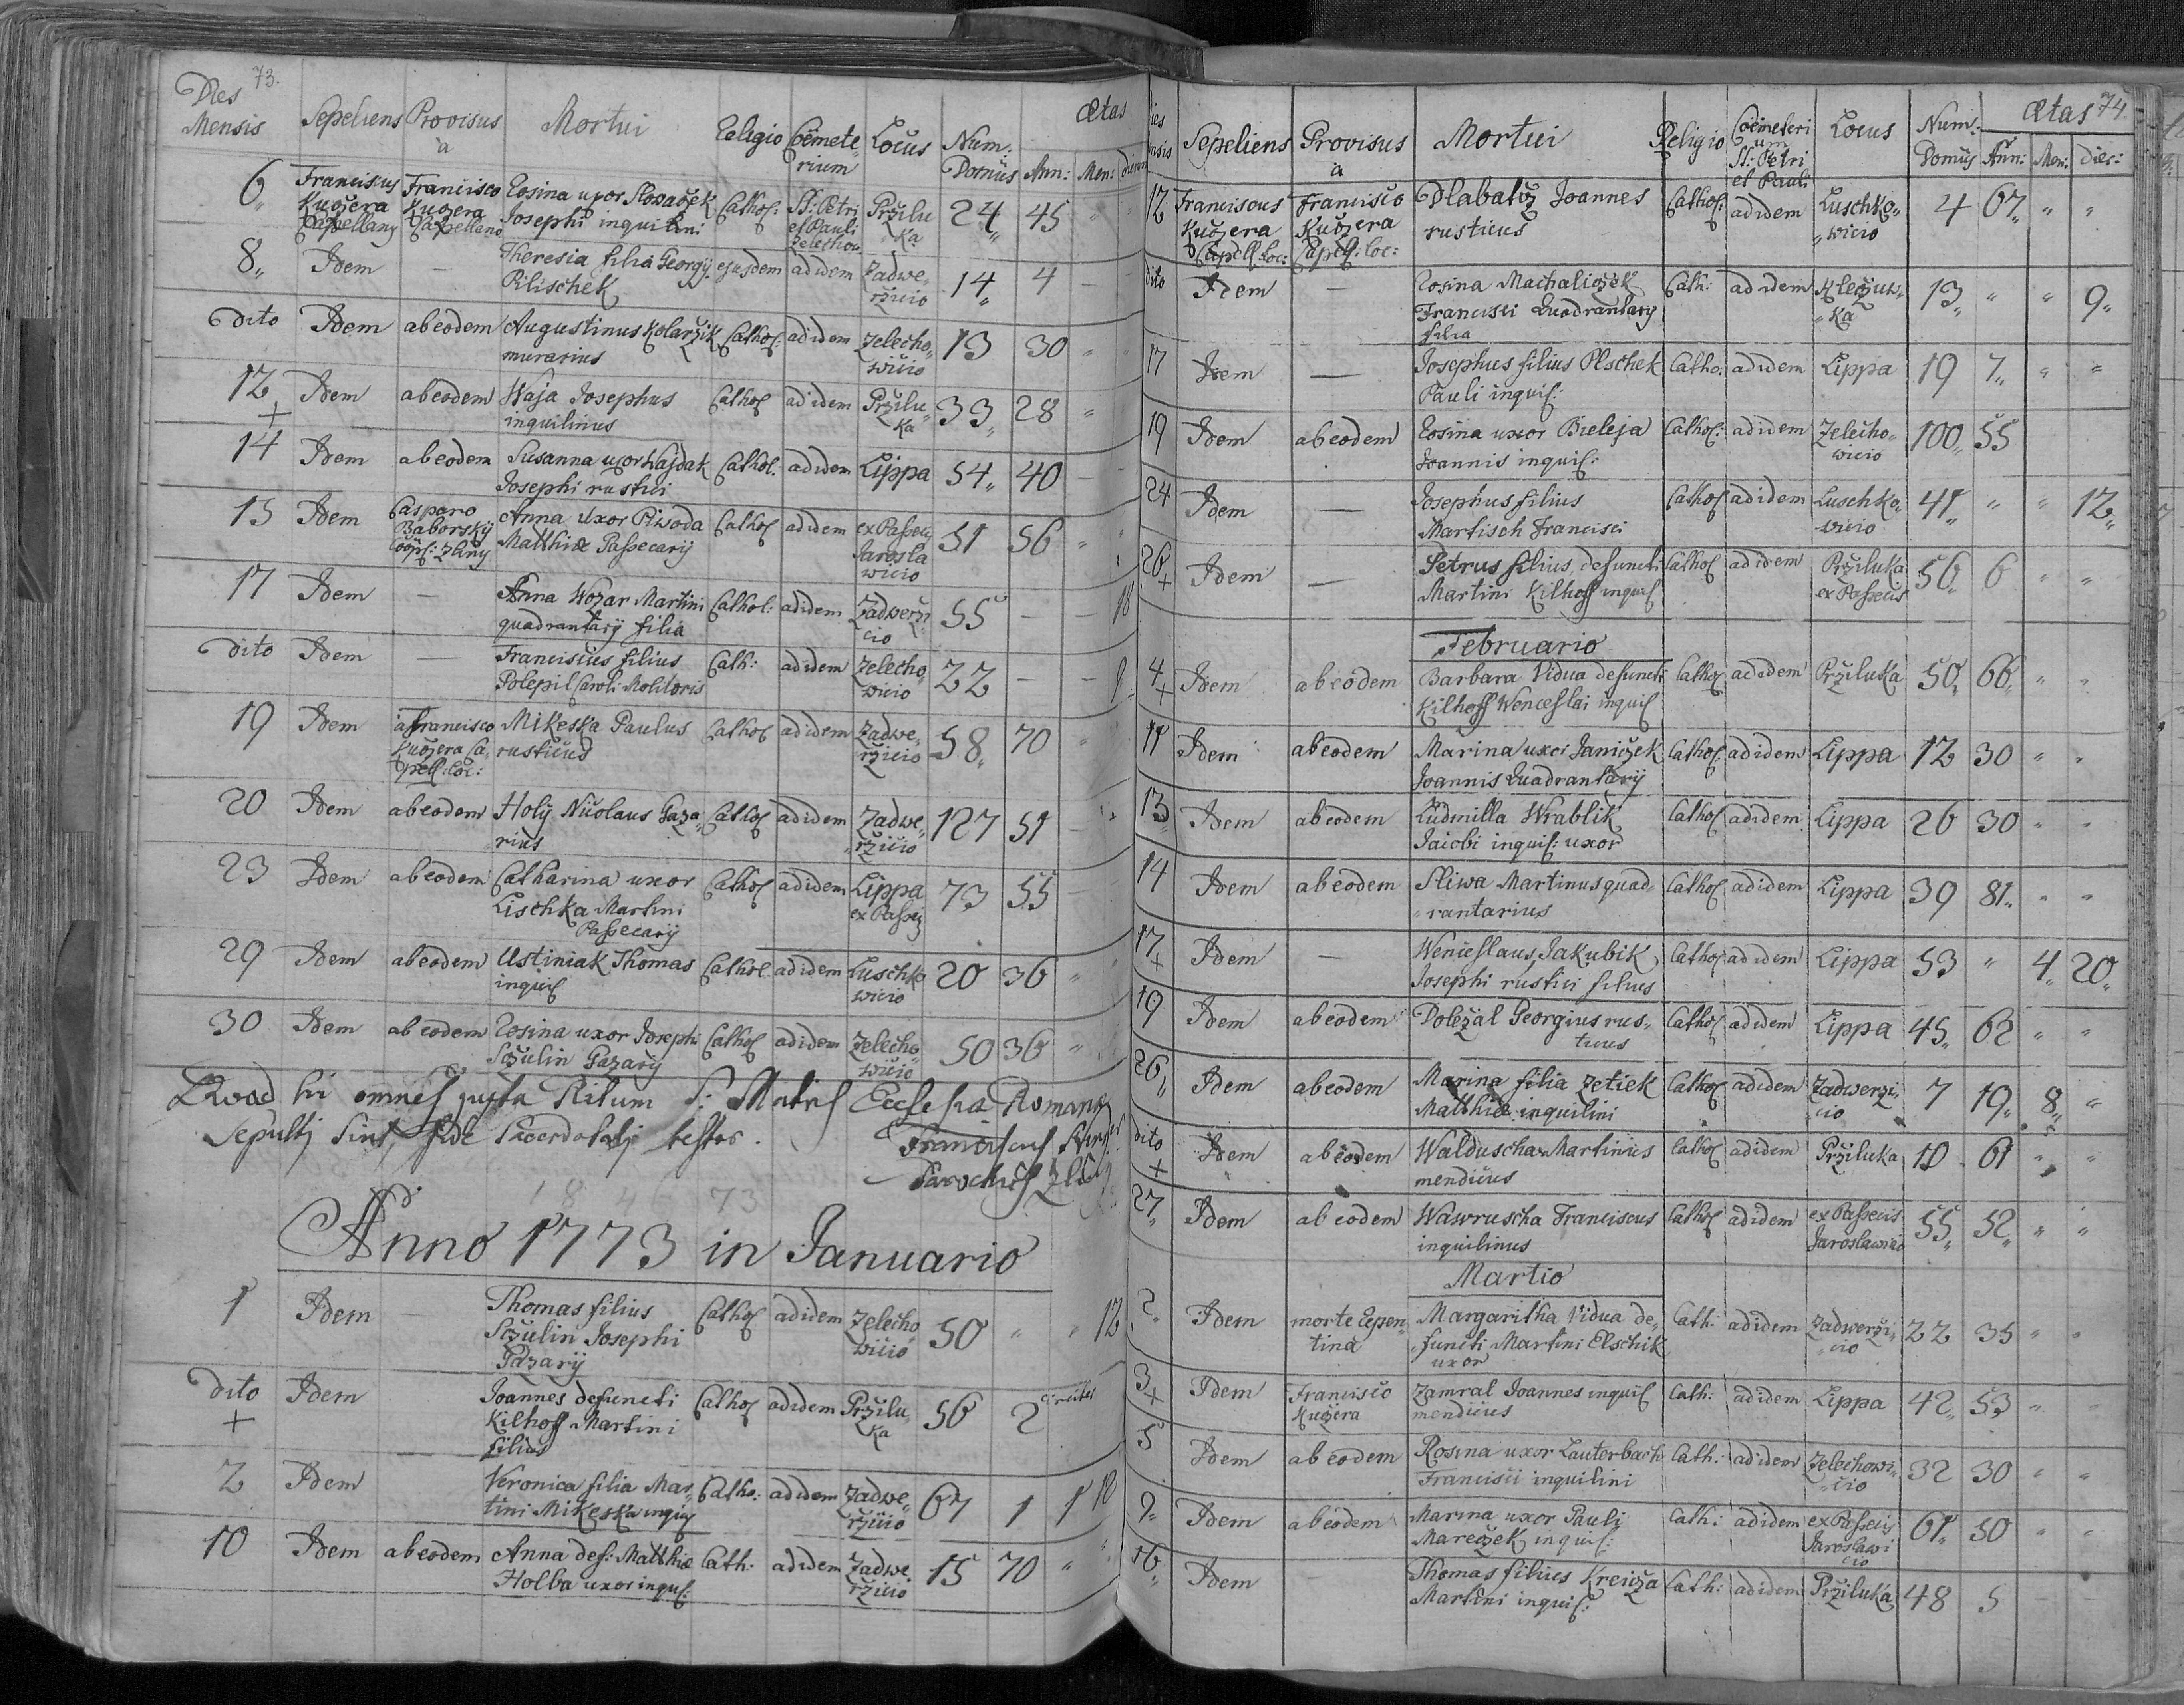 73.
Dies Mensis Sepeliens Provisus a Mortui Religio Coëmeterium Locus Num. Domûs Ætas Ann: Men: dierum
6 Franciscus Kuczera Capellany Francisco Kuczera Capellano Rosina uxor Slovaczek Josephi inquilini Cathol: St: Petri et Pauli Zelechov. Prziluka 24 45
8 Idem — Theresia filia Georgÿ Rlischek ejusdem ad idem Zadwerzicio 14 4
Dito Idem ab eodem Augustinus Kolarzik murarius Cathol: ad idem Zelechowicio 13 30
12 + Idem ab eodem Waja Josephus inquilinus Cathol ad idem Prziluka 33 28
14 Idem ab eodem Susanna uxor Wajdak Josephi rustici Cathol: ad idem Lippa 54 40
15 Idem Casparo Baborsky Coop: Zliny Anna Uxor Piwoda Matthiæ Passecarÿ Cathol ad idem ex Passeij Jaroslawicio 51 56
17 Idem — Anna Wozar Martini quadrantarÿ filia Cathol: ad idem Zadwerzicio 55 — — 18
dito Idem — Franciscus filius Polepil Caroli Molitoris Cath: ad idem Zelechowicio 22 — — 9
19 Idem a Francisco Kuczera Capell: loc: Mikeska Paulus rusticus Cathol ad idem Zadwerzicio 58 70
20 Idem ab eodem Holÿ Nicolaus Gazarius Cathol ad idem Zadwerzicio 127 51
23 Idem ab eodem Catharina uxor Lischka Martini Passecarÿ Cathol ad idem Lippa ex Passeij 73 55
29 Idem ab eodem Ustiniak Thomas inquil Cathol. ad idem Luschkowicio 20 36
30 Idem ab eodem Rosina uxor Josephi Sczulin Gazarÿ Cathol ad idem Zelechowicio 50 36
Quod hi omnes juxta Ritum S: Matris Ecclesiæ Romanæ
Sepulti sint, fide Sacerdotali testor.
Franciscus
Parochus
18 46 73
Anno 1773 in Januario
1 Idem — Thomas filius Sczulin Josephi Gazarÿ Cathol ad idem Zelechowicio 50 " " 12
dito + Idem — Joannes defuncti Kilhoff Martini filius Cathol ad idem Prziluka 56 2
2 Idem Veronica filia Martini Mikeska inquil Catho: ad idem Zadwerzicio 67 1 1 10
10 Idem ab eodem Anna def: Matthiæ Holba uxor inquil: Cath: ad idem Zadwerzicio 15 70 "
74.
Sepeliens Provisus a Mortui Religio Coëmeterium St: Petri et Pauli Locus Num: Domûs Ætas Ann: Men: Dies:
12 Franciscus Kuczera Capell: loc: Francisco Kuczera Capell: loc: Dlabatz Joannes rusticus Cathol: ad idem Luschkowicio 4 67 " "
dito Idem — Rosina Machaliczek Francisci Quadrantarÿ filia Cath: ad idem Kleczuwka 13 " " 9
17 Idem — Josephus filius Plschek Pauli inquil: Catho: ad idem Lippa 19 7 " "
19 Idem ab eodem Rosina uxor Bieleja Joannis inquil: Cathol: ad idem Zelechowicio 100 55
24 Idem — Josephus filius Martisch Francisci Cathol ad idem Luschkowicio 41 " " 12
26 + Idem — Petrus filius defuncti Martini Kilhoff inquil Cathol ad idem Prziluka ex Passecis 56 6 " "
Februario
4 + Idem ab eodem Barbara Vidua defuncti Kilhoff Wenceslai inquil Cathol ad idem Prziluka 50 66 " "
11 Idem ab eodem Marina uxor Janiczek Joannis Quadrantarÿ Cathol: ad idem Lippa 12 30 " "
13 Idem ab eodem Ludmilla Wrablik Jacobi inquil: uxor Cathol ad idem Lippa 26 30 " "
14 Idem ab eodem Sliwa Martinus quadrantarius Cathol ad idem Lippa 39 81 " "
17 + Idem — Wenceslaus Jakubik Josephi rustici filius Cathol ad idem Lippa 53 " 4 20
19 Idem ab eodem Dolezal Georgius rusticus Cathol ad idem Lippa 45 62 " "
26 Idem ab eodem Marina filia Zetiek Matthiæ inquilini Cathol ad idem Zadwerzicio 7 19 8 "
dito + Idem ab eodem Walduscha Martinus mendicus Cathol ad idem Prziluka 10 61 " "
27 Idem ab eodem Wawruscha Franciscus inquilinus Cathol ad idem ex Passecis Jaroslawicio 55 52 " "
Martio
2 Idem morte repentina Margaritha Vidua defuncti Martini Elschik uxor Cath: ad idem Zadwerzicio 22 35 " "
3 + Idem Francisco Kuczera Zamral Joannes inquil mendicus Cath: ad idem Lippa 42 53 "
5 Idem ab eodem Rosina uxor Lauterbach Francisci inquilini Cath: ad idem Zelechowicio 32 30 " "
9 Idem ab eodem Marina uxor Pauli Mareczek inquil: Cath: ad idem ex Passecis Jaroslawicio 61 50 " "
16 Idem — Thomas filius Kreicza Martini inquil: Cath: ad idem Prziluka 48 5